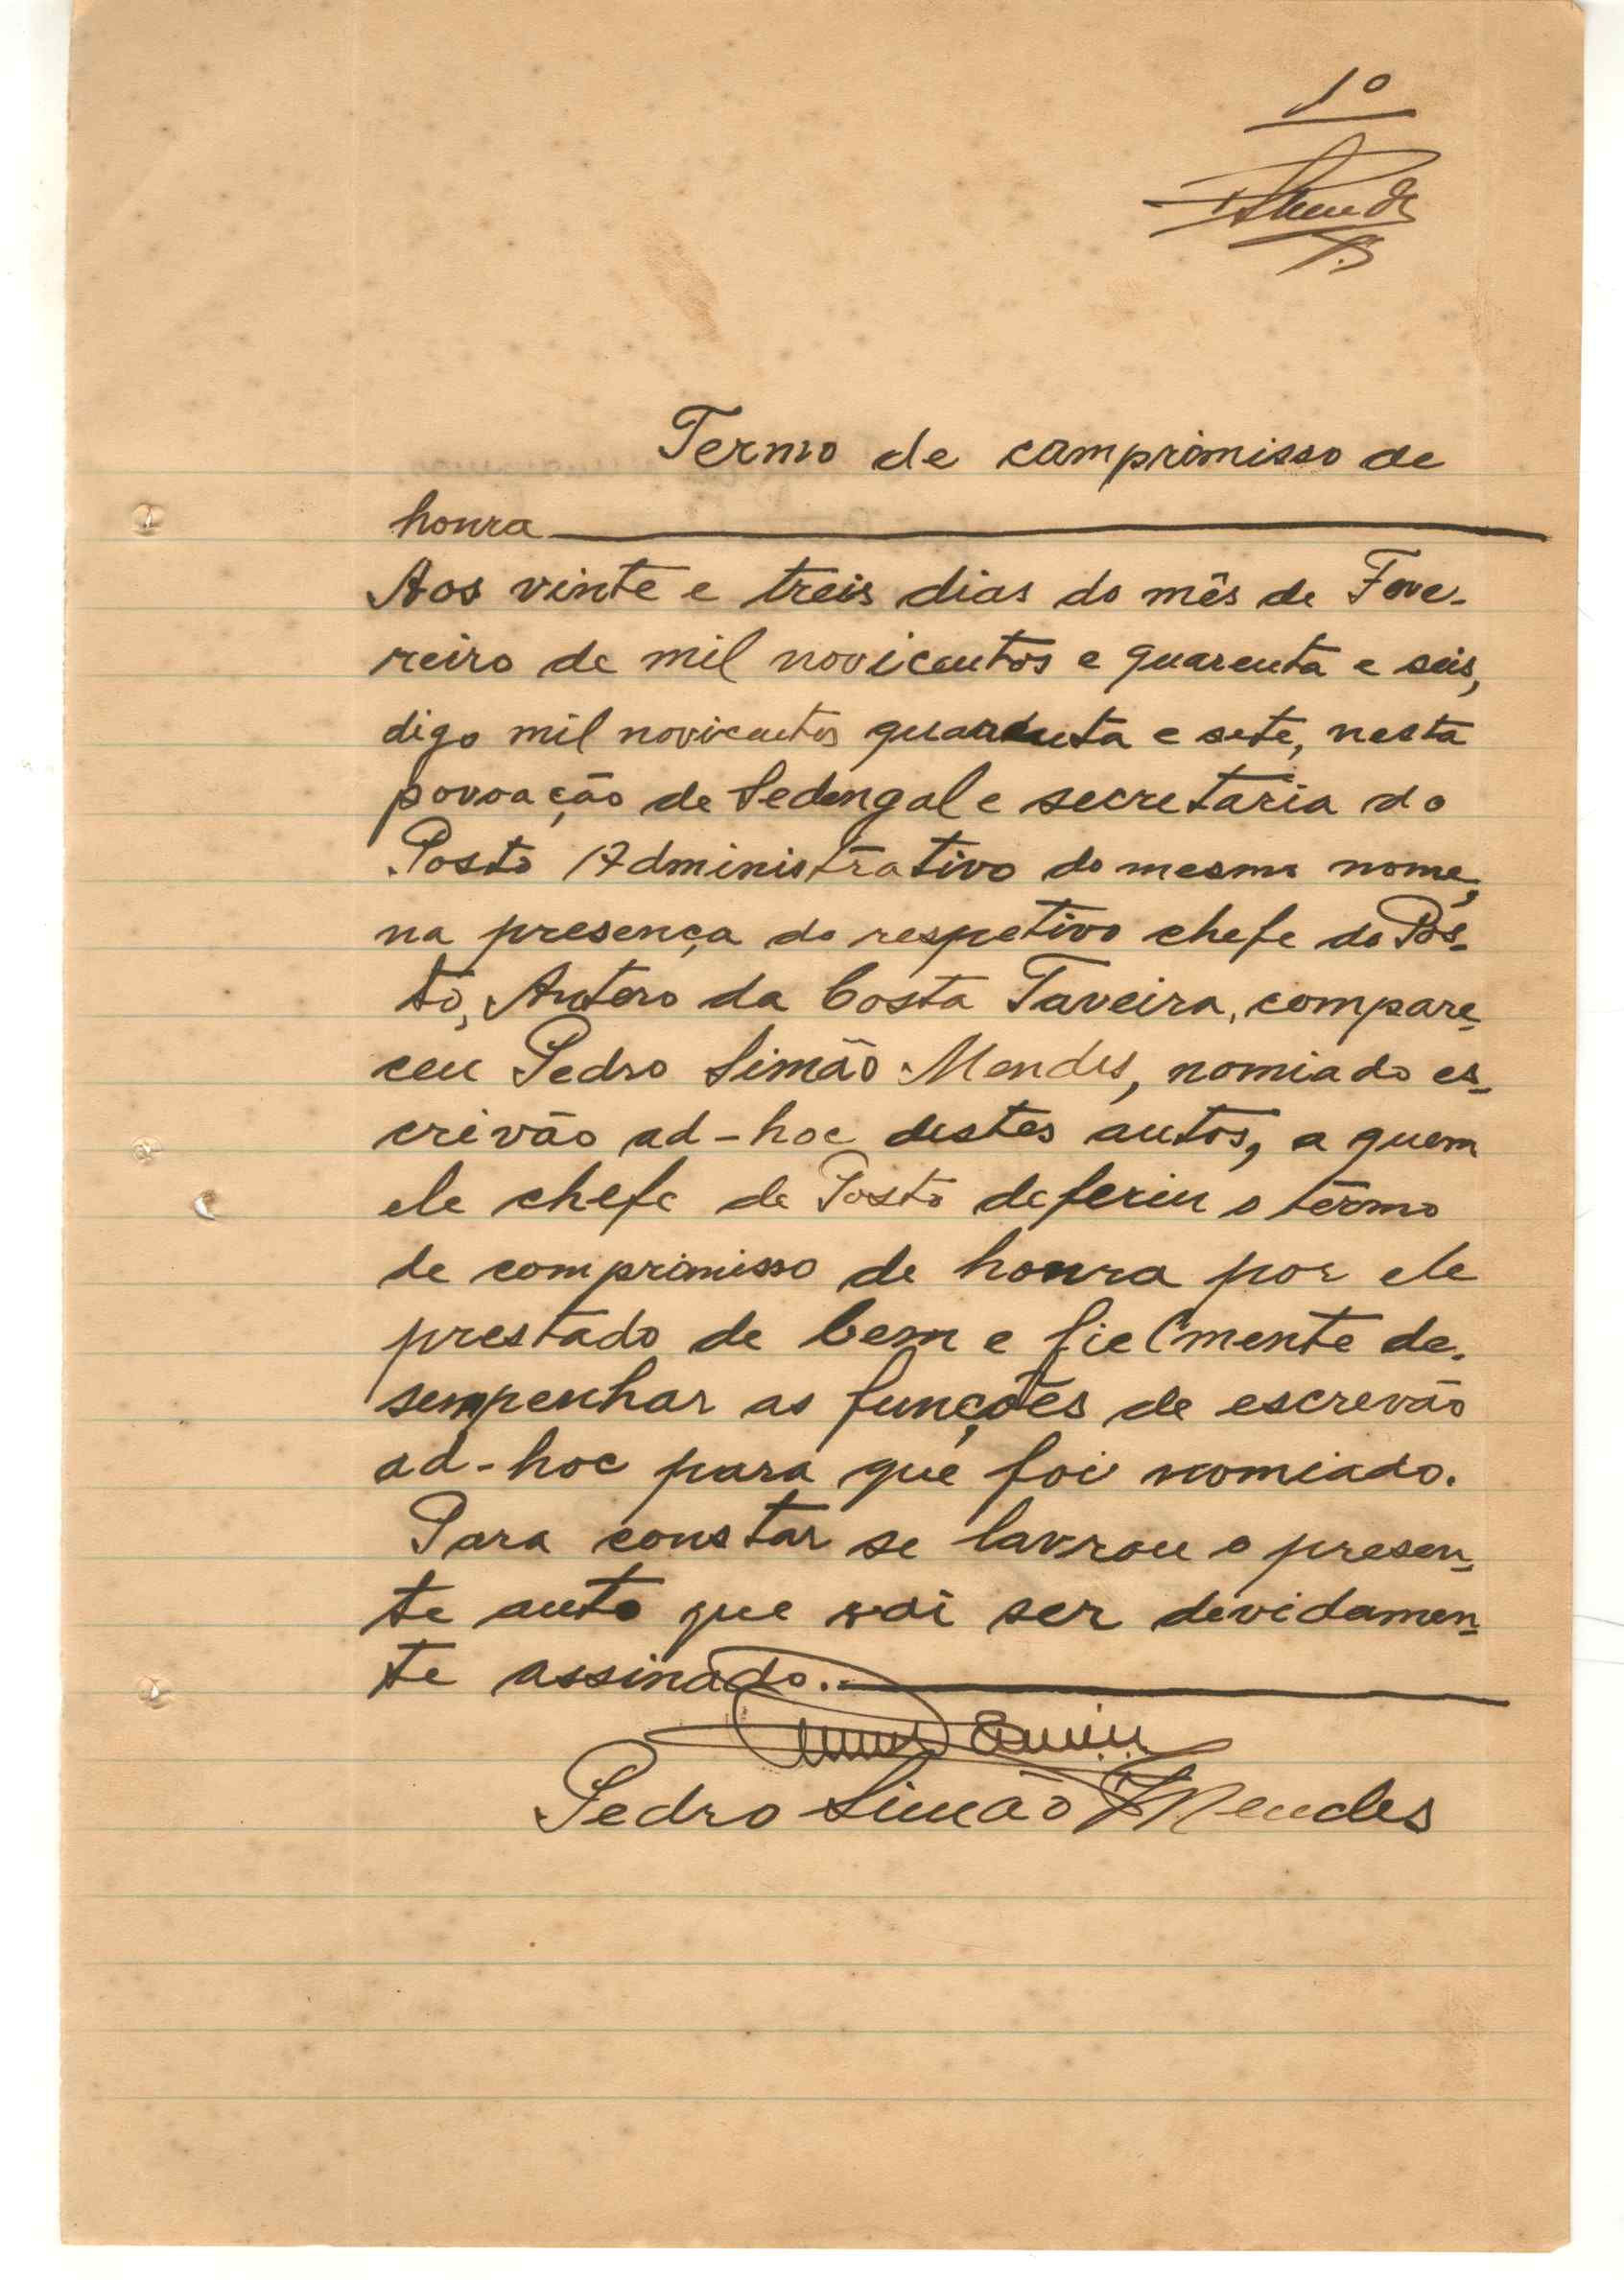 1º
Termo de comprimisso de
honra
Aos vinte e treis dias do mês de Feve-
reiro de mil novicentos e quarenta e seis,
digo mil novicentos quarenta e sete, nesta
povoação de Sedengal e secretaria do
Posto Administrativo do mesmo nome,
na presença do respetivo chefe do Pôs-
to, Antero da Costa Taveira, compare-
ceu Pedro Simão Mendes, nomiado es-
crivão ad-hoc destes autos, a quem
ele chefe de Posto deferiu o têrmo
de comprimisso de honra por ele
prestado de bem e fielmente de-
sempenhar as funções de escrevão
ad-hoc para que foi nomiado.
Para constar se lavrou o presen-
te auto que vai ser devidamen-
te assinado.
Pedro Simão Mendes